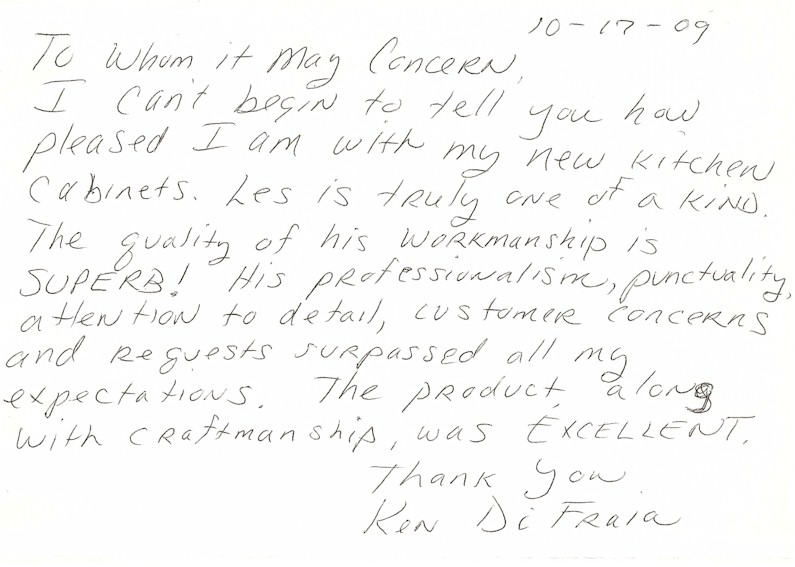 10-17-09
To Whom it May Concern,
I can't begin to tell you how
pleased I am with my new kitchen
cabinets. Les is truly one of a kind.
The quality of his workmanship is
SUPERB! His professionalism, punctuality,
attention to detail, customer concerns
and requests surpassed all my
expectations. The product, along
with craftmanship, was EXCELLENT.
Thank you
Ken Di Fraia